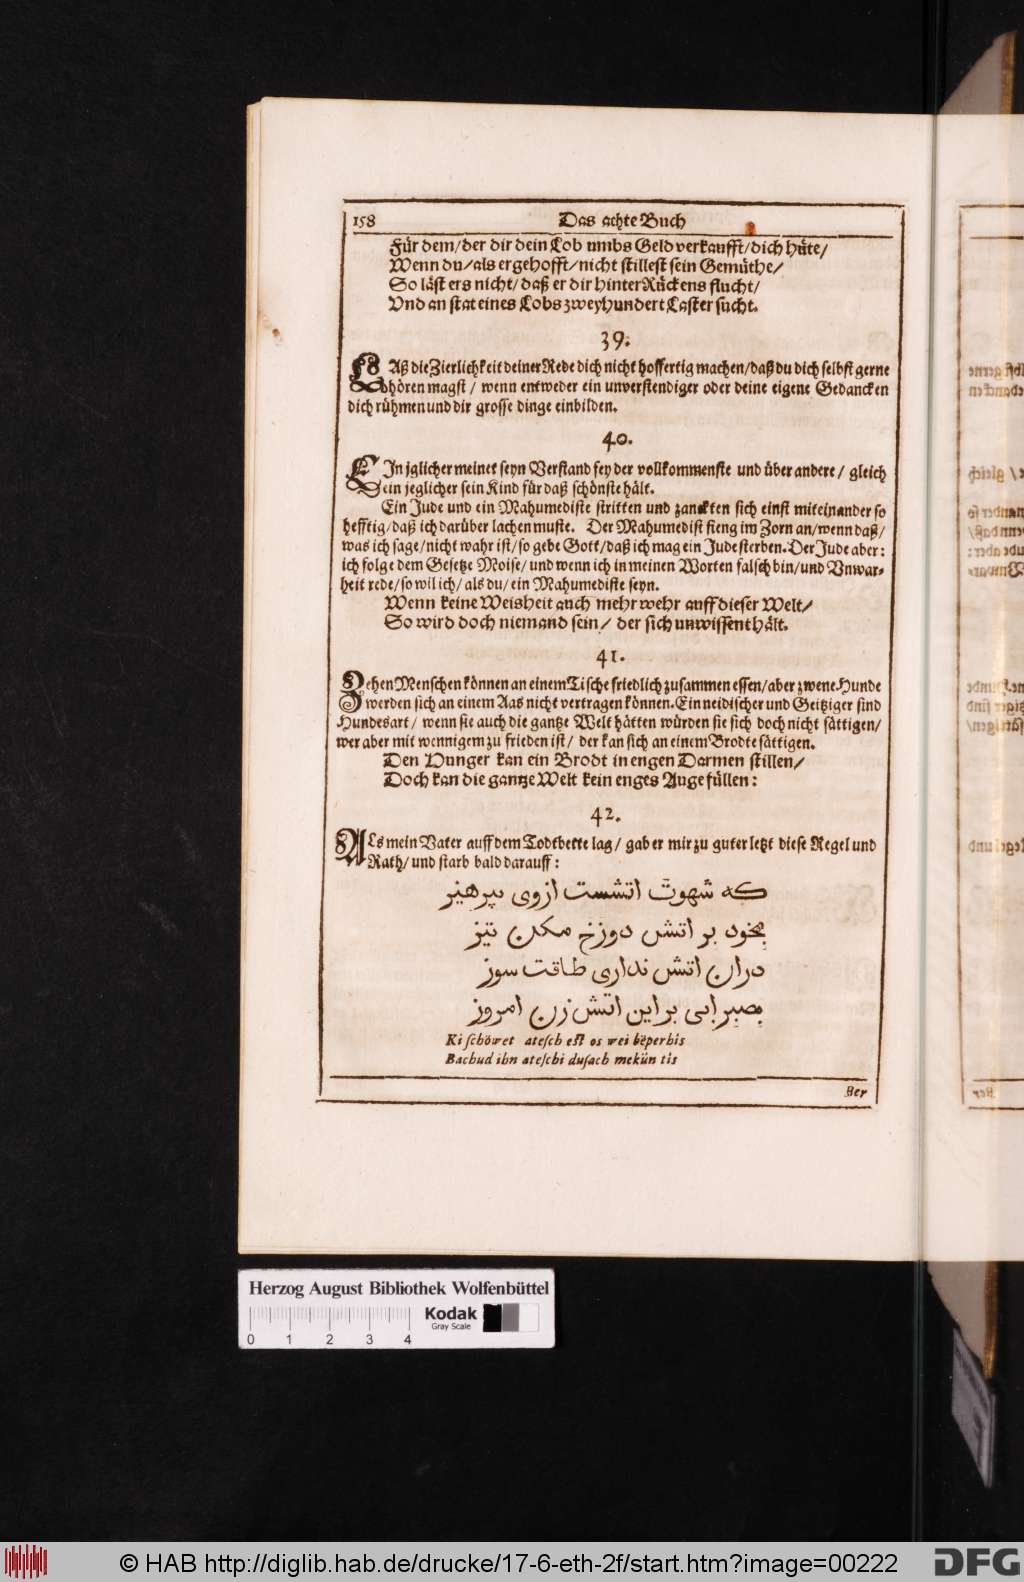 158 Das achte Buch
Für dem/ der dir dein Lob umbs Geld verkaufft/ dich hüte/
Wenn du/ als er gehofft/ nicht stillest sein Gemüthe/
So läst ers nicht/ daß er dir hinter Rückens flucht/
Und an stat eines Lobs zweyhundert Laster sucht.
39.
LAß die Zierlichkeit deiner Rede dich nicht hoffertig machen/ daß du dich selbst gerne
hören magst/ wenn entweder ein unverstendiger oder deine eigene Gedancken
dich rühmen und dir grosse dinge einbilden.
40.
EIn jglicher meinet seyn Verstand sey der vollkommenste und über andere/ gleich
ein jeglicher sein Kind für daß schönste hält.
Ein Jude und ein Mahumediste stritten und zanckten sich einst miteinander so
hefftig/ daß ich darüber lachen muste. Der Mahumedist fieng im Zorn an/ wenn daß/
was ich sage/ nicht wahr ist/ so gebe Gott/ daß ich mag ein Jude sterben. Der Jude aber:
ich folge dem Gesetze Moise/ und wenn ich in meinen Worten falsch bin/ und Unwar-
heit rede/ so wil ich/ als du/ ein Mahumediste seyn.
Wenn keine Weisheit auch mehr wehr auff dieser Welt/
So wird doch niemand sein/ der sich unwissent hält.
41.
Zehen Menschen können an einem Tische friedlich zusammen essen/ aber zwene Hunde
werden sich an einem Aas nicht vertragen können. Ein neidischer und Geitziger sind
Hundes art/ wenn sie auch die gantze Welt hätten würden sie sich doch nicht sättigen/
wer aber mit wennigem zu frieden ist/ der kan sich an einem Brodte sättigen.
Den Hunger kan ein Brodt in engen Darmen stillen/
Doch kan die gantze Welt kein enges Auge füllen:
42.
ALs mein Vater auff dem Todtbette lag/ gab er mir zu guter letzt diese Regel und
Rath/ und starb bald darauff:
که شهوت اتشست ازوی بپرهیز
بخود بر اتش دوزخ مکن تیز
دران اتش نداری طاقت سوز
بصبر ابی بر این اتش زن امروز
Ki schöwet atesch est os wei béperhis
Bachud ihn ateschi dusach mekün tis
Ber
Herzog August Bibliothek Wolfenbüttel
Kodak
Gray Scale
0 1 2 3 4
© HAB http://diglib.hab.de/drucke/17-6-eth-2f/start.htm?image=00222
DFG